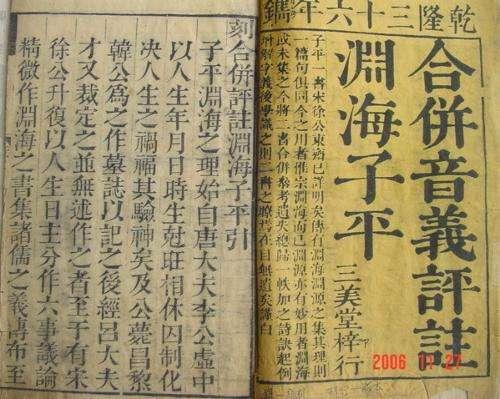 乾隆三十六年鐫
合併音義評註
淵海子平
三美堂梓行
子平一書宋徐公東齋已詳明矣傳有淵海淵源之集其理則
一篇句俱同今之用者惟宗淵海而已淵源亦有妙用者淵海
或未集之今將二書合併參考遺失總歸一帙加之詩訣起例
增解字義後學識之則書之聯篇在目無遺矣謹白
刻合併評註淵海子平引
子平淵海之理始自唐大夫李公虛中
以人生年月日時生尅旺相休囚制化
決人生之禍福其驗神矣及公薨昌黎
韓公爲之作墓誌以記之後經呂大夫
才又裁定之並無述作之者至于有宋
徐公升復以人生日主分作六事議論
精微作淵海之書集諸儒之義傳布至
2006 11 27